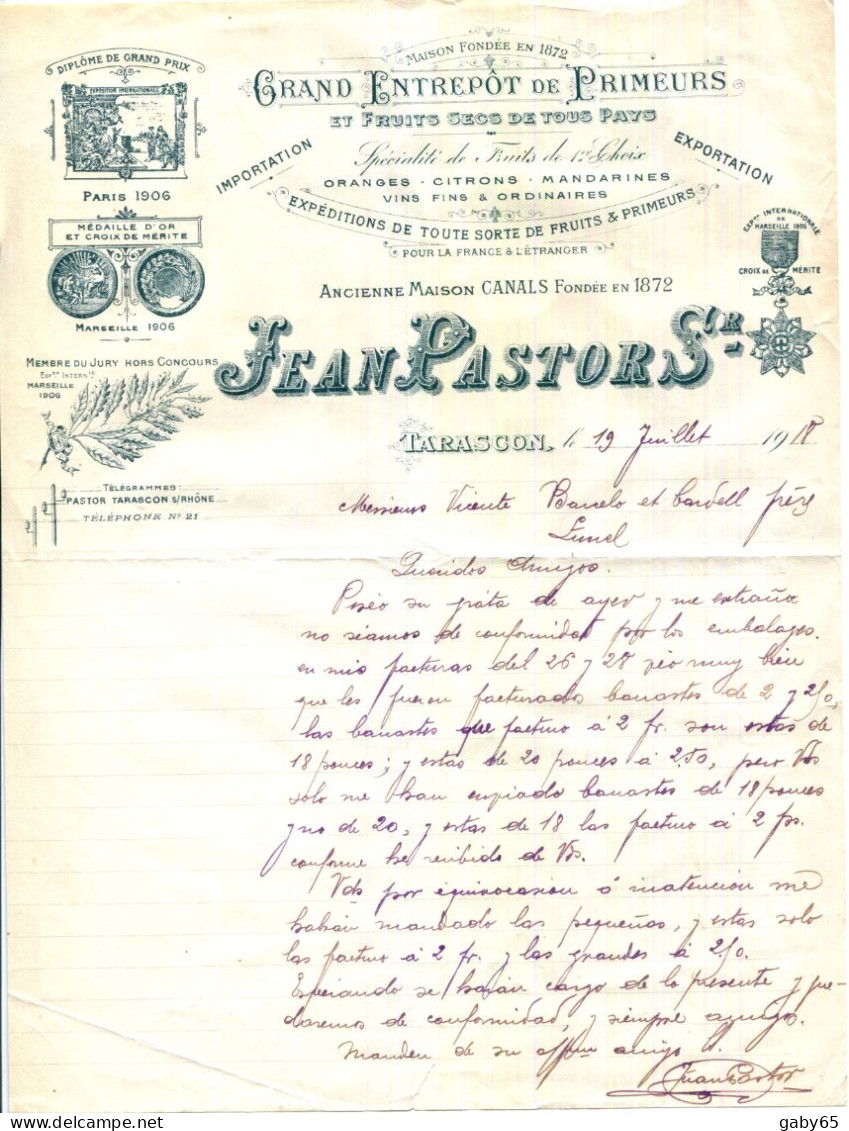 MAISON FONDÉE EN 1872
DIPLÔME DE GRAND PRIX
GRAND ENTREPÔT DE PRIMEURS
EXPOSITION INTERNATIONALE
ET FRUITS SECS DE TOUS PAYS
IMPORTATION
EXPORTATION
Spécialité de Fruits de 1er Choix
ORANGES - CITRONS - MANDARINES
PARIS 1906
VINS FINS & ORDINAIRES
EXPÉDITIONS DE TOUTE SORTE DE FRUITS & PRIMEURS
MÉDAILLE D'OR
ET CROIX DE MÉRITE
POUR LA FRANCE & L'ÉTRANGER
EXPon INTERNATIONALE
DE
MARSEILLE 1906
CROIX DE MÉRITE
ANCIENNE MAISON CANALS FONDÉE EN 1872
MARSEILLE 1906
JEAN PASTOR SUR
MEMBRE DU JURY HORS CONCOURS
EXPon INTERNle
MARSEILLE
1906
TARASCON, le 19 Juillet 1918
TÉLÉGRAMMES:
PASTOR TARASCON S/RHÔNE
TÉLÉPHONE No 21
Messieurs Vicente Barcelo et Cardell frères
Lunel
Queridos Amigos.
Poséo su grata de ayer y me extraña
no séamos de conformidat por los embalages.
en mis facturas del 26 y 28 véo muy bien
que les fueron facturados banastes de 2 y 2,50,
las banastes que facturo á 2 fr. son estas de
18 pouces; y estas de 20 pouces á 2.50, pero Vds
solo me han enviado banastes de 18 pouces
y no de 20, y estas de 18 las facturo á 2 ps.
conforme he recibido de Vds.
Vds por équivocasion ó inatencion me
habian mandado las pequeñas, y estas solo
las facturo á 2 fr. y las grandes á 2,50.
Esperando se harán cargo de lo presente y que-
daremos de conformidad, y siempre amigos.
Manden de su affmo amigo
Juan Pastor
gaby65